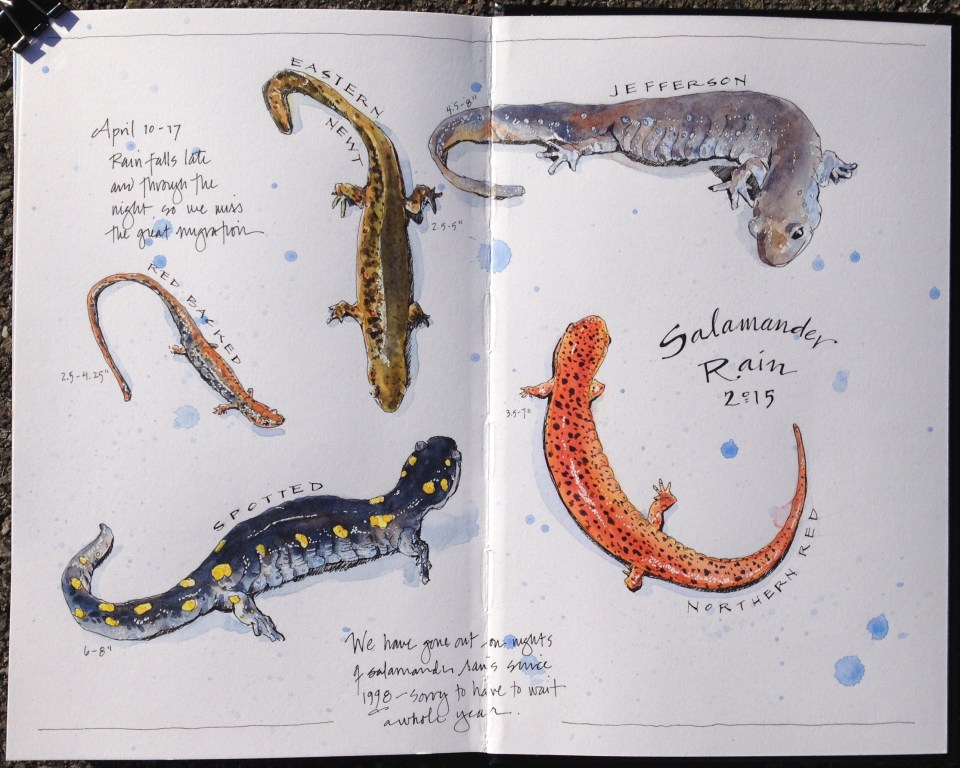 April 10-17
Rain falls late
and through the
night, so we miss
the great migration
EASTERN
NEWT
2.5-5"
JEFFERSON
4.5-8"
RED BACKED
2.5-4.25"
Salamander
Rain
2015
3.5-7"
NORTHERN RED
SPOTTED
6-8"
We have gone out on nights
of salamander rains since
1998 - sorry to have to wait
a whole year.